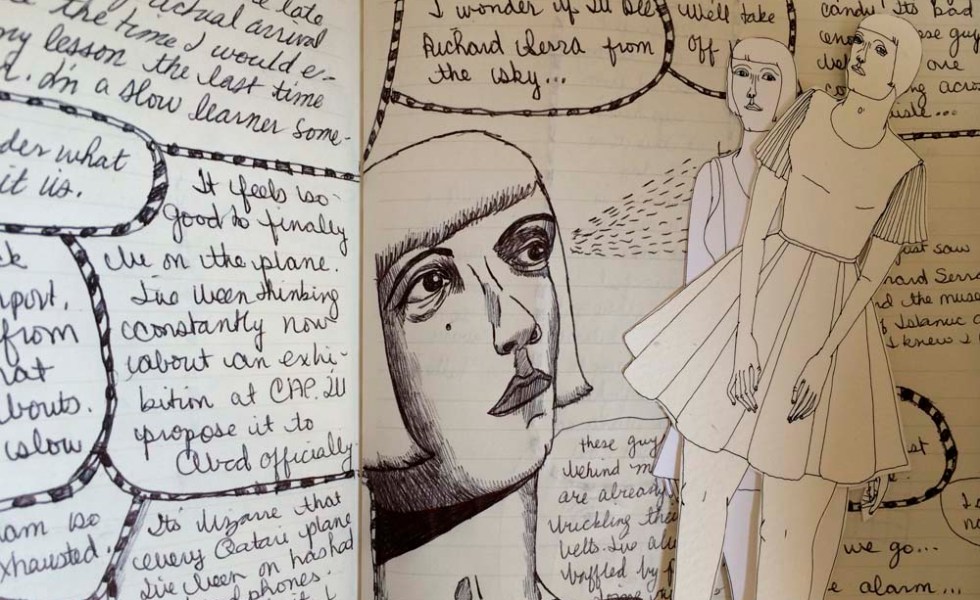 late
the time I would e-
my lesson the last time
I'm a slow learner some-
actual arrival
what
it is.
It feels so
good to finally
be on the plane.
I've been thinking
constantly now
about an exhi-
bition at CAP. I'll
propose it to
Abed officially
from
hat
bouts.
slow
am so
exhausted.
It's bizarre that
every Qatari plane
I've been on has had
phones.
I wonder if I'll see
Richard Serra from
the sky...
We'll take
off
candy! It's bad
these guys
are
across
aisle...
just saw
Richard Serra
and the
of Islamic
I knew I
these guy
behind m
are already
buckling their
belts. I've
baffled by
we go...
alarm...